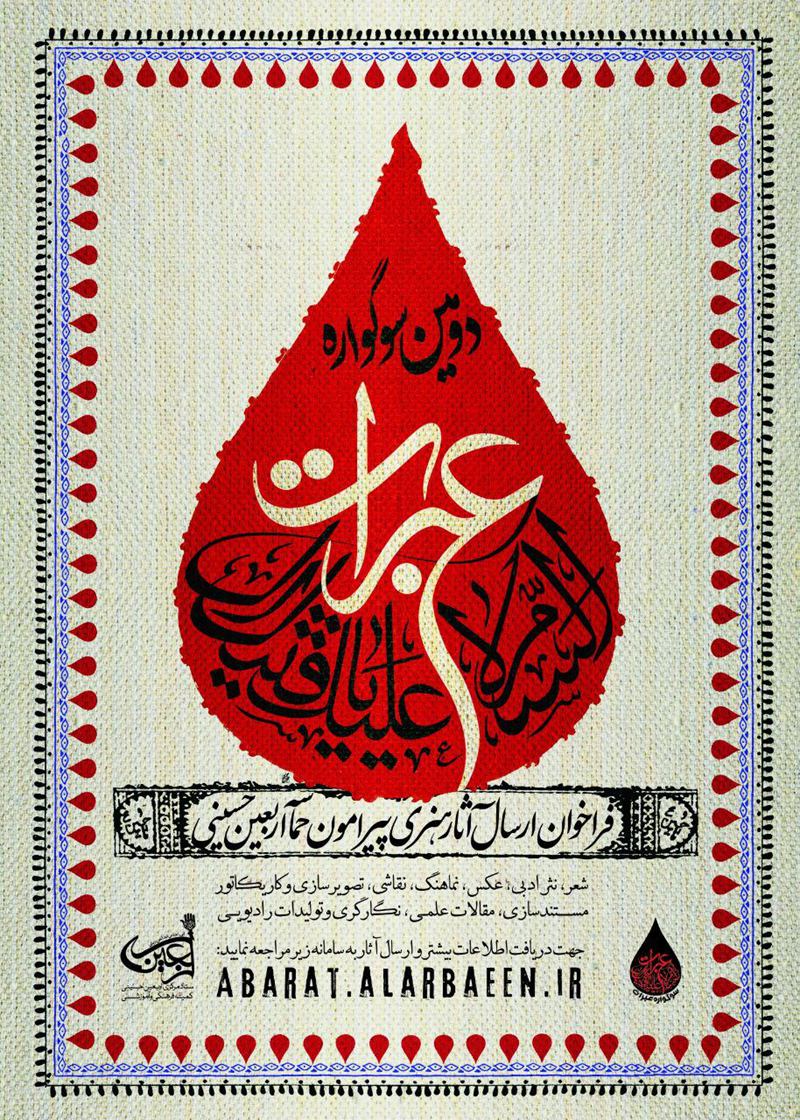 دومین سوگواره
عبرات
السّلام علیک یا قتیل
فراخوان ارسال آثار هنری پیرامون حماسه اربعین حسینی
شعر، نثر ادبی، عکس، نماهنگ، نقاشی، تصویرسازی و کاریکاتور
مستندسازی، مقالات علمی، نگارگری و تولیدات رادیویی
جهت دریافت اطلاعات بیشتر و ارسال آثار به سامانه زیر مراجعه نمایید:
ABARAT.ALARBAEEN.IR
اربعین
ستاد مرکزی اربعین حسینی
کمیته فرهنگی و آموزشی
عبرات
سوگواره عبرات